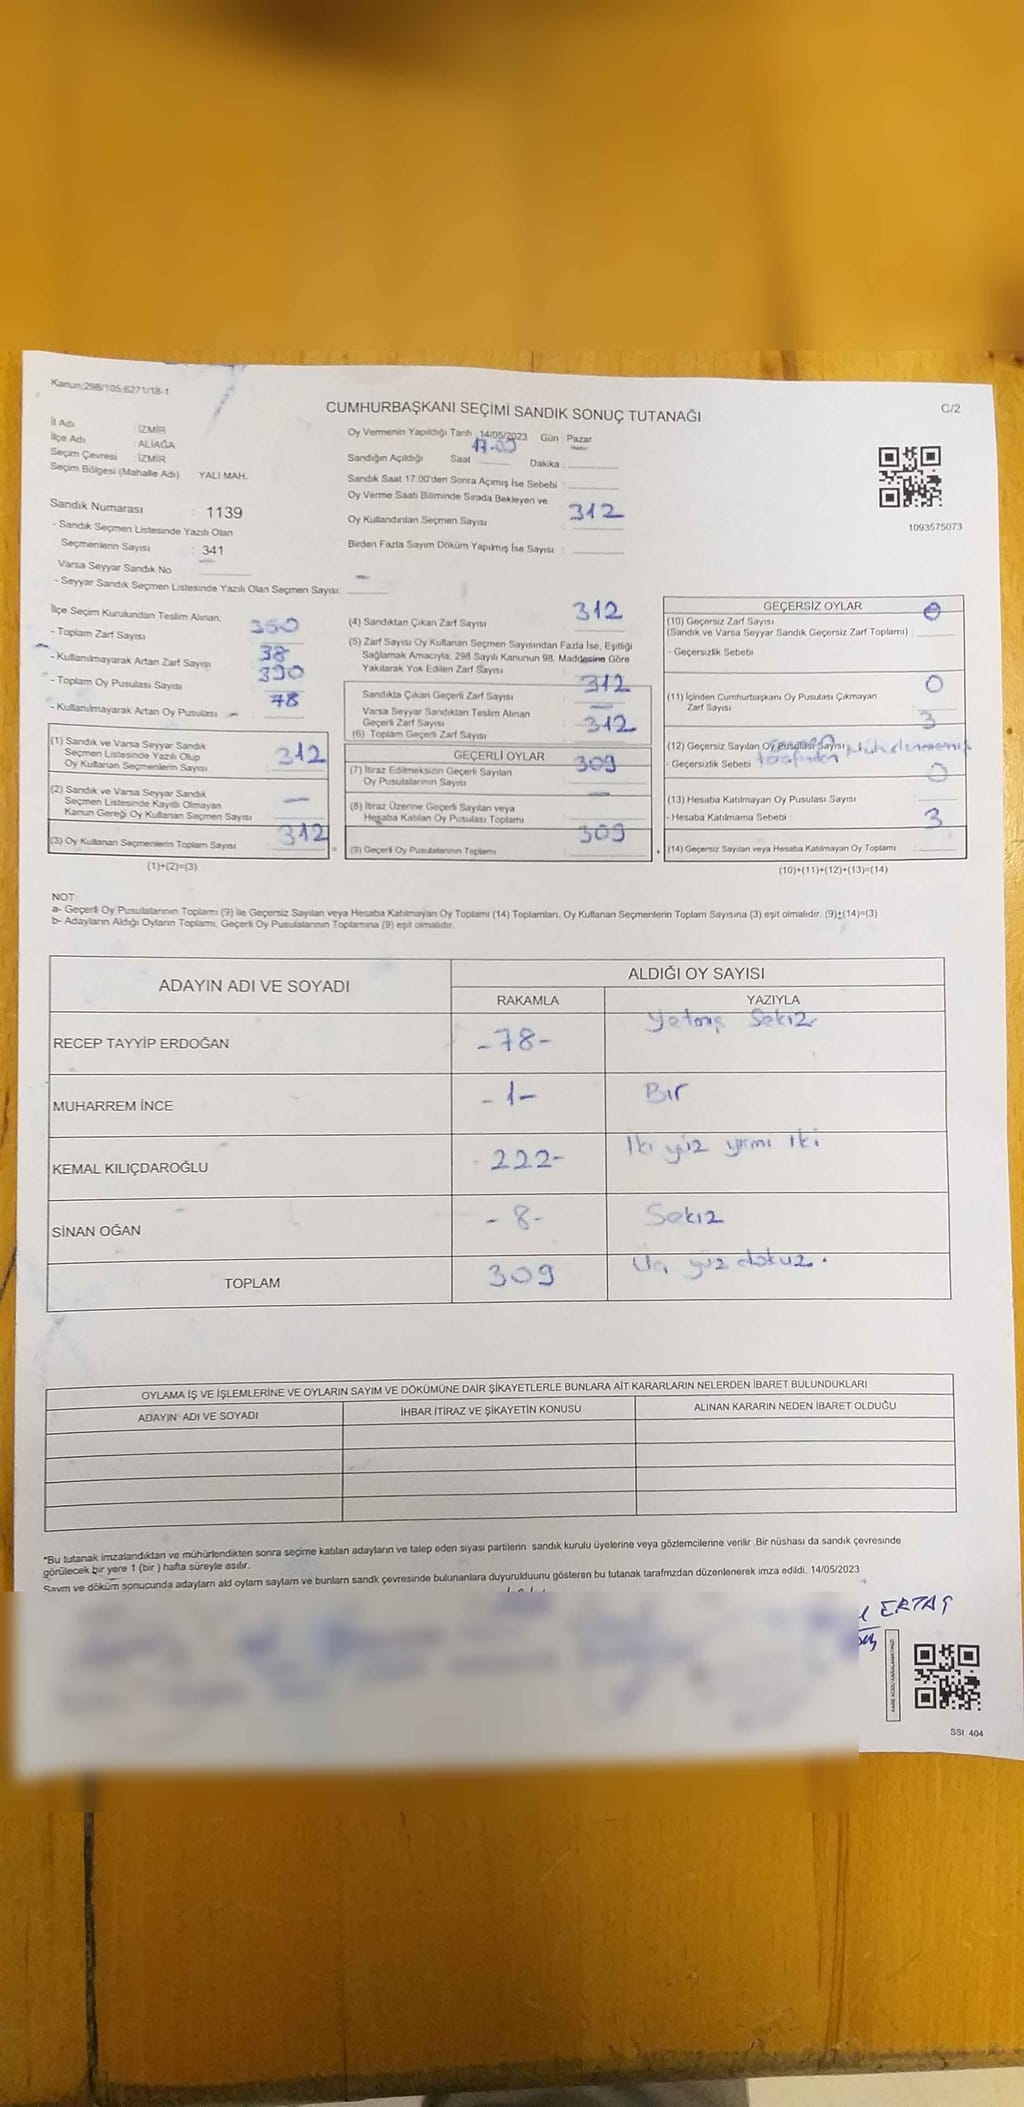 Kanun:298/105;6271/18-1
CUMHURBAŞKANI SEÇİMİ SANDIK SONUÇ TUTANAĞI
C/2
İl Adı : İZMİR
İlçe Adı : ALİAĞA
Seçim Çevresi : İZMİR
Seçim Bölgesi (Mahalle Adı) YALI MAH.
Sandık Numarası : 1139
- Sandık Seçmen Listesinde Yazılı Olan
Seçmenlerin Sayısı : 341
Varsa Seyyar Sandık No —
- Seyyar Sandık Seçmen Listesinde Yazılı Olan Seçmen Sayısı: —
Oy Vermenin Yapıldığı Tarih : 14/05/2023 Gün : Pazar
Sandığın Açıldığı Saat 17.00 Dakika :
Sandık Saat 17:00'den Sonra Açımış İse Sebebi :
Oy Verme Saati Bitiminde Sırada Bekleyen ve
Oy Kullandırılan Seçmen Sayısı : 312
Birden Fazla Sayım Döküm Yapılmış İse Sayısı :
1093575073
İlçe Seçim Kurulundan Teslim Alınan;
- Toplam Zarf Sayısı 350
- Kullanılmayarak Artan Zarf Sayısı 38
- Toplam Oy Pusulası Sayısı 390
- Kullanılmayarak Artan Oy Pusulası 78
(1) Sandık ve Varsa Seyyar Sandık
Seçmen Listesinde Yazılı Olup
Oy Kullanan Seçmenlerin Sayısı : 312
(2) Sandık ve Varsa Seyyar Sandık
Seçmen Listesinde Kayıtlı Olmayan
Kanun Gereği Oy Kullanan Seçmen Sayısı —
(3) Oy Kullanan Seçmenlerin Toplam Sayısı 312
(1)+(2)=(3)
(4) Sandıktan Çıkan Zarf Sayısı : 312
(5) Zarf Sayısı Oy Kullanan Seçmen Sayısından Fazla İse, Eşitliği
Sağlamak Amacıyla, 298 Sayılı Kanunun 98. Maddesine Göre
Yakılarak Yok Edilen Zarf Sayısı :
Sandıkta Çıkan Geçerli Zarf Sayısı : 312
Varsa Seyyar Sandıktan Teslim Alınan
Geçerli Zarf Sayısı : —
(6) Toplam Geçerli Zarf Sayısı : 312
GEÇERLİ OYLAR
(7) İtiraz Edilmeksizin Geçerli Sayılan
Oy Pusulalarının Sayısı : 309
(8) İtiraz Üzerine Geçerli Sayılan veya
Hesaba Katılan Oy Pusulası Toplamı —
(9) Geçerli Oy Pusulalarının Toplamı 309
GEÇERSİZ OYLAR
(10) Geçersiz Zarf Sayısı
(Sandık ve Varsa Seyyar Sandık Geçersiz Zarf Toplamı) : 0
- Geçersizlik Sebebi
(11) İçinden Cumhurbaşkanı Oy Pusulası Çıkmayan
Zarf Sayısı : 0
(12) Geçersiz Sayılan Oy Pusulası Sayısı 3
- Geçersizlik Sebebi tarafından
(13) Hesaba Katılmayan Oy Pusulası Sayısı 0
- Hesaba Katılmama Sebebi :
(14) Geçersiz Sayılan veya Hesaba Katılmayan Oy Toplamı : 3
(10)+(11)+(12)+(13)=(14)
NOT:
a- Geçerli Oy Pusulalarının Toplamı (9) ile Geçersiz Sayılan veya Hesaba Katılmayan Oy Toplamı (14) Toplamları, Oy Kullanan Seçmenlerin Toplam Sayısına (3) eşit olmalıdır. (9)+(14)=(3)
b- Adayların Aldığı Oyların Toplamı, Geçerli Oy Pusulalarının Toplamına (9) eşit olmalıdır.
ADAYIN ADI VE SOYADI ALDIĞI OY SAYISI
RAKAMLA YAZIYLA
RECEP TAYYİP ERDOĞAN -78- Yetmiş Sekiz
MUHARREM İNCE -1- Bir
KEMAL KILIÇDAROĞLU 222- İki yüz yirmi iki
SİNAN OĞAN -8- Sekiz
TOPLAM 309 Üç yüz dokuz.
OYLAMA İŞ VE İŞLEMLERİNE VE OYLARIN SAYIM VE DÖKÜMÜNE DAİR ŞİKAYETLERLE BUNLARA AİT KARARLARIN NELERDEN İBARET BULUNDUKLARI
ADAYIN ADI VE SOYADI İHBAR İTİRAZ VE ŞİKAYETİN KONUSU ALINAN KARARIN NEDEN İBARET OLDUĞU
*Bu tutanak imzalandıktan ve mühürlendikten sonra seçime katılan adayların ve talep eden siyasi partilerin sandık kurulu üyelerine veya gözlemcilerine verilir .Bir nüshası da sandık çevresinde
görülecek bir yere 1 (bir ) hafta süreyle asılır.
Sayım ve döküm sonucunda adayların ald oyların sayların ve bunların sandk çevresinde bulunanlara duyurulduunu gösteren bu tutanak tarafmzdan düzenlenerek imza edildi. 14/05/2023
ERTAŞ
SSI 404